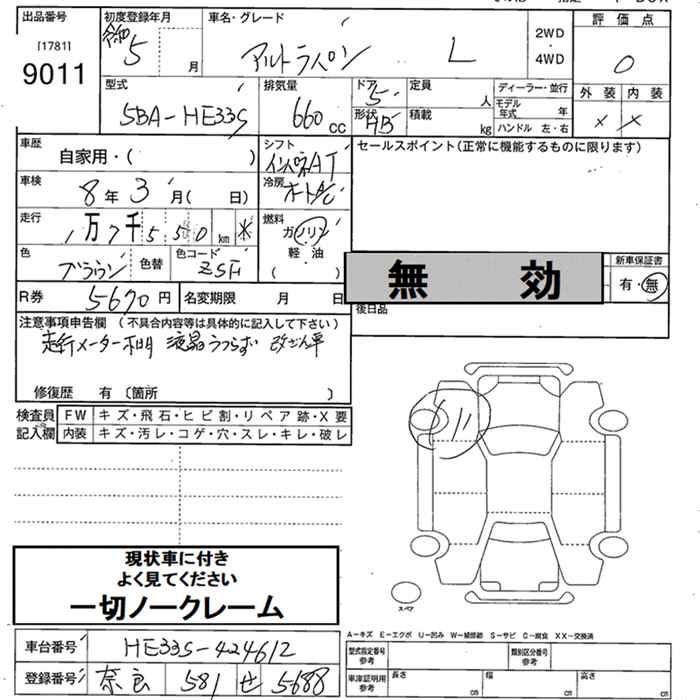 出品番号
[1781]
9011
初度登録年月
5 月
車名・グレード
アルトラパン L
2WD
・
4WD
評価点
0
型式
5BA-HE33S
排気量
660 cc
ドア
5
形状
HB
定員
人
積載
kg
ディーラー・並行
モデル
年式
年
ハンドル 左・右
外装 内装
× ×
車歴
自家用・( )
シフト
インパネAT
セールスポイント(正常に機能するものに限ります)
車検
8年 3月( 日)
冷房
走行
1万7千550km *
燃料
ガソリン
軽油
( )
色
ブラウン
色替
色コード
無 効
新車保証書
有・無
R券
5670円
名変期限 月 日
後日品
注意事項申告欄 (不具合内容等は具体的に記入して下さい)
走行メーター不明 液晶うつらず 改ざん車
修復歴 有 〔箇所 〕
検査員
記入欄
FW キズ・飛石・ヒビ割・リペア跡・X要
内装 キズ・汚レ・コゲ・穴・スレ・キレ・破レ
スペア
現状車に付き
よく見てください
一切ノークレーム
A-キズ E-エクボ U-凹み W-補修跡 S-サビ C-腐食 XX-交換済
車台番号
HE33S-424612
登録番号
奈良 581 せ 5688
型式指定番号
参考
類別区分番号
参考
車庫証明用
参考
長さ cm
幅 cm
高さ cm